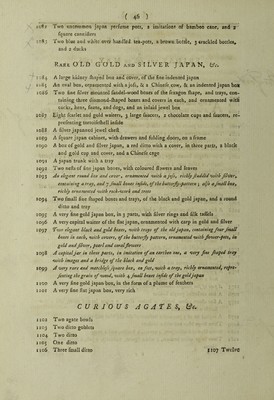 ( 46 )
1082 Two uncommon japan perfume pots, 2 imitations of bamboo cane, and 2
square canisters
1083 Two blue and white over handled tea-pots, a brown bottle, 7 crackled bottles,
and 2 ducks
RARE OLD GOLD AND SILVER JAPAN, &c.
1084 A large kidney shaped box and cover, of the fine indented japan
1085 An oval box, ornamented with a josh, & a Chinese cow, & an indented japan box
1086 Two fine silver mounted sandal-wood boxes of the hexagon shape, and trays, con-
taining three diamond-shaped boxes and covers in each, and ornamented with
storks, bees, fauns, and dogs, and an inlaid pearl box
1087 Eight scarlet and gold waiters, 3 large saucers, 2 chocolate cups and saucers, re-
presenting tortoiseshell inside
1088 A silver japanned jewel chest
1089 A square japan cabinet, with drawers and folding doors, on a frame
1090 A box of gold and silver japan, a red ditto with a cover, in three parts, a black
and gold cup and cover, and a Chinese cage
1091 A japan trunk with a tray
1092 Two nests of fine japan boxes, with coloured flowers and leaves
1093 An elegant round box and cover, ornamented with a josh, richly studded with silver,
containing a tray, and 7 small boxes inside, of the butterfly pattern; also a small box,
richly ornamented with rock-work and trees
1094 Two small five shaped boxes and trays, of the black and gold japan, and a round
ditto and tray
1095 A very fine gold japan box, in 3 parts, with silver rings and silk tassels
1096 A very capital waiter of the flat japan, ornamented with carp in gold and silver
1097 Four elegant black and gold boxes, with cocks of the old japan, containing four small
boxes in each, with covers, of the butterfly pattern, ornamented with flower-pots, in
gold and silver, pearl and coral flowers
1098 A capital jar in three parts, in imitation of an urchin one, a very fine shaped tray
with images and a bridge of the black and gold
1099 A very rare and matchless square box, on feet, with a tray, richly ornamented, repre-
senting the grain of wood, with 4 small boxes inside of the gold japan
1100 A very fine gold japan box, in the form of a plume of feathers
1101 A very fine flat japan box, very rich
CURIOUS AGATES, &c.
1102 Two agate bowls
1103 Two ditto goblets
1104 Two ditto
1105 One ditto
1106 Three small ditto
1107 Twelve